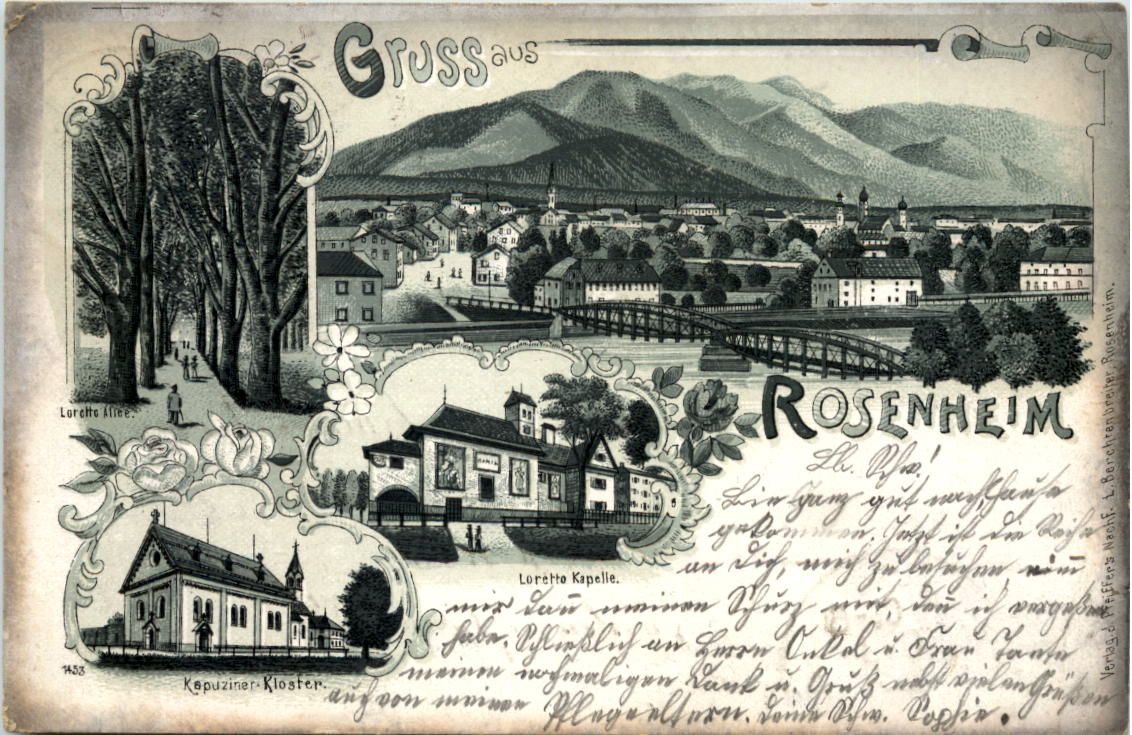 Gruss aus
ROSENHEIM
Loretto Allee.
MARIA
Loretto Kapelle.
1453
Kapuziner-Kloster.
Verlag d. Pfeiffer's Nachf. L. Berchtenbreiter, Rosenheim.
Lb. Schw!
Bin ganz gut nach Hause
gekommen. Jetzt ist die Reihe
an Dich, mich zu besuchen, nim̄
mir dan̄ meinen Schurz mit, den ich vergeßen
habe. Schließlich an Herrn Onkel u. Frau Tante
meinen nochmaligen Dank u. Gruß nebst vielen Grüßen
auch von meinen Pflegeeltern. Deine Schw. Sophie.